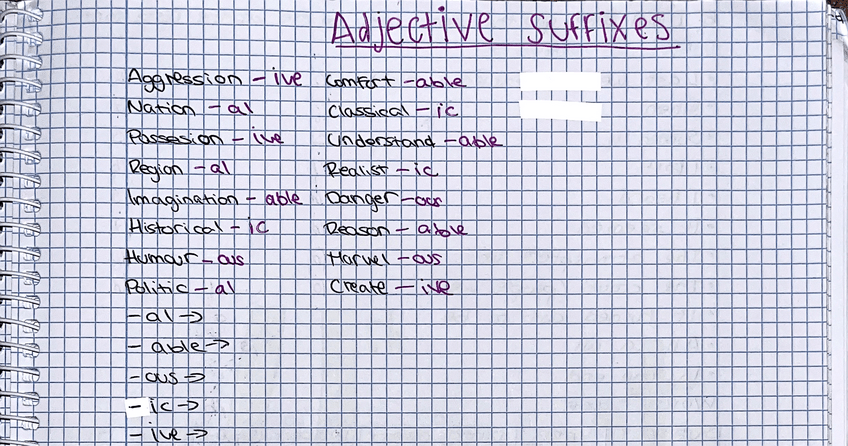 Adjective suffixes
Aggression - ive Comfort - able
Nation - al Classical - ic
Possesion - ive Understand - able
Region - al Realist - ic
Imagination - able Danger - ous
Historical - ic Reason - able
Humour - ous Marvel - ous
Politic - al Create - ive
- al ->
- able ->
- ous ->
- ic ->
- ive ->